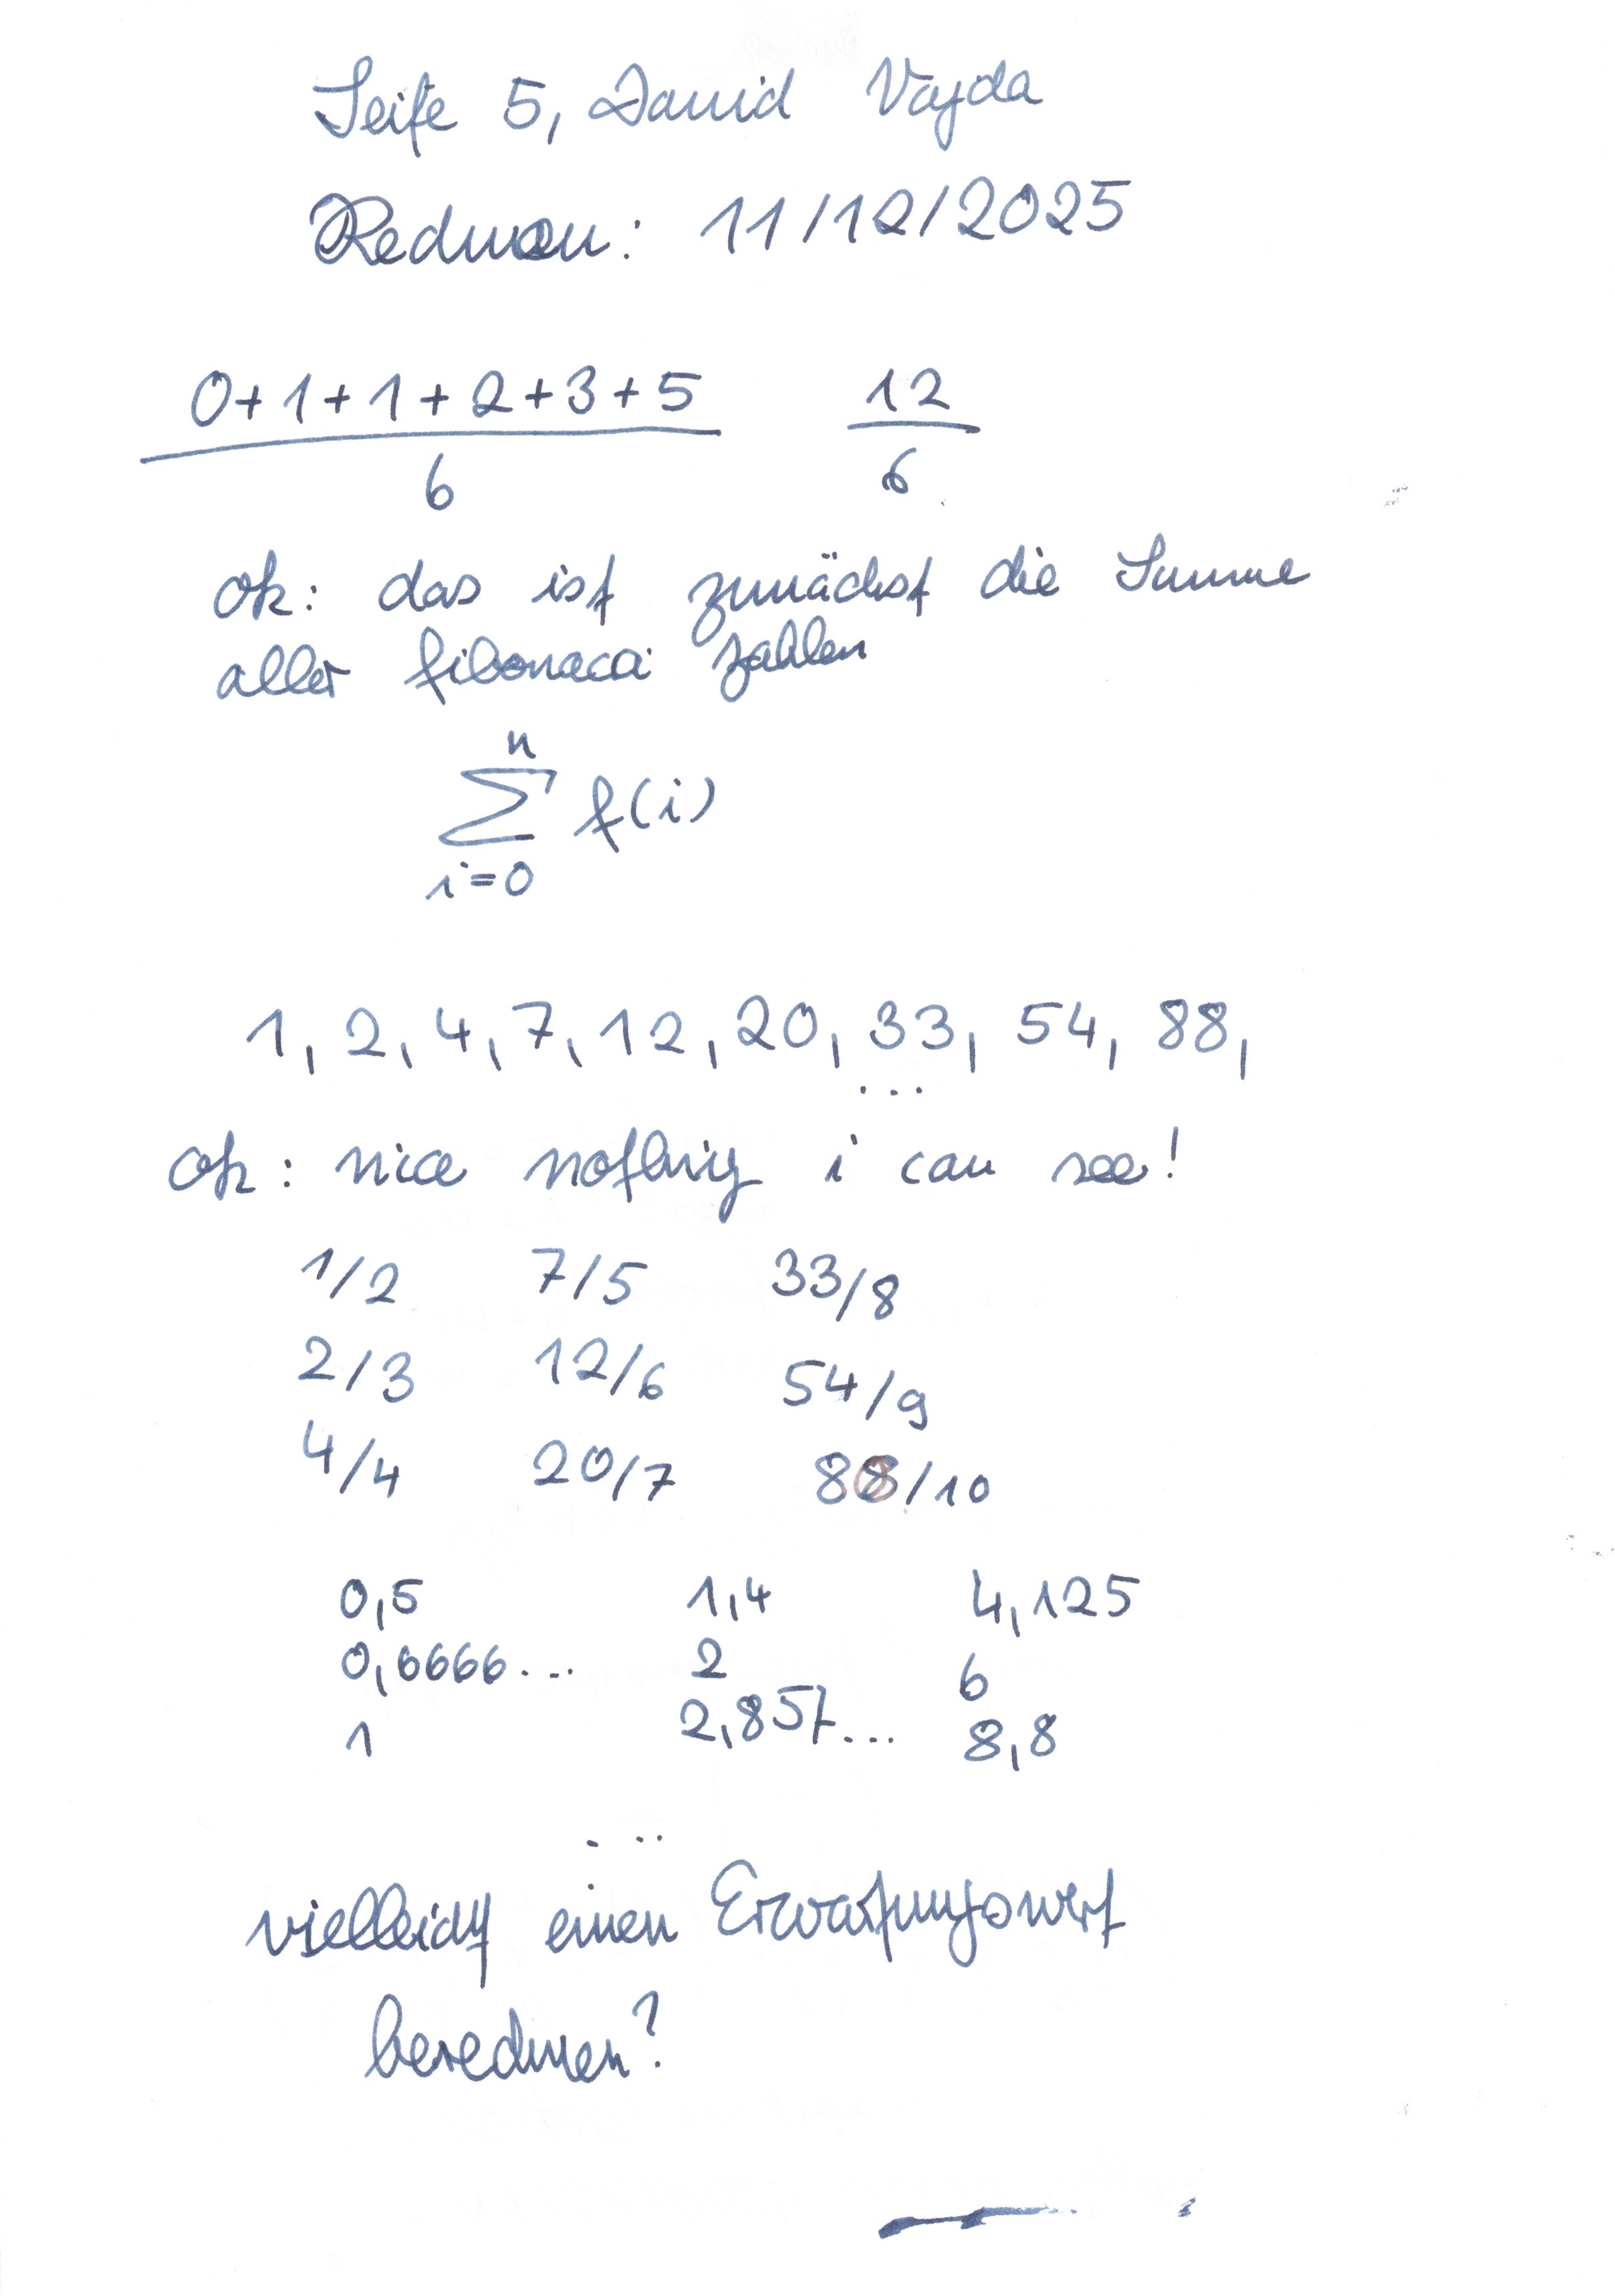 Seite 5, David Vajda
Rechnen: 11/12/2025
0+1+1+2+3+5 12
6 6
ok: das ist zunächst die Summe
aller fibonacci zahlen
n
∑ f(i)
i=0
1, 2, 4, 7, 12, 20, 33, 54, 88,
...
ok: nice nothing i can see!
1/2 7/5 33/8
2/3 12/6 54/9
4/4 20/7 88/10
0,5 1,4 4,125
0,6666... 2 6
1 2,857... 8,8
...
vielleicht einen Erwartungswert
berechnen?